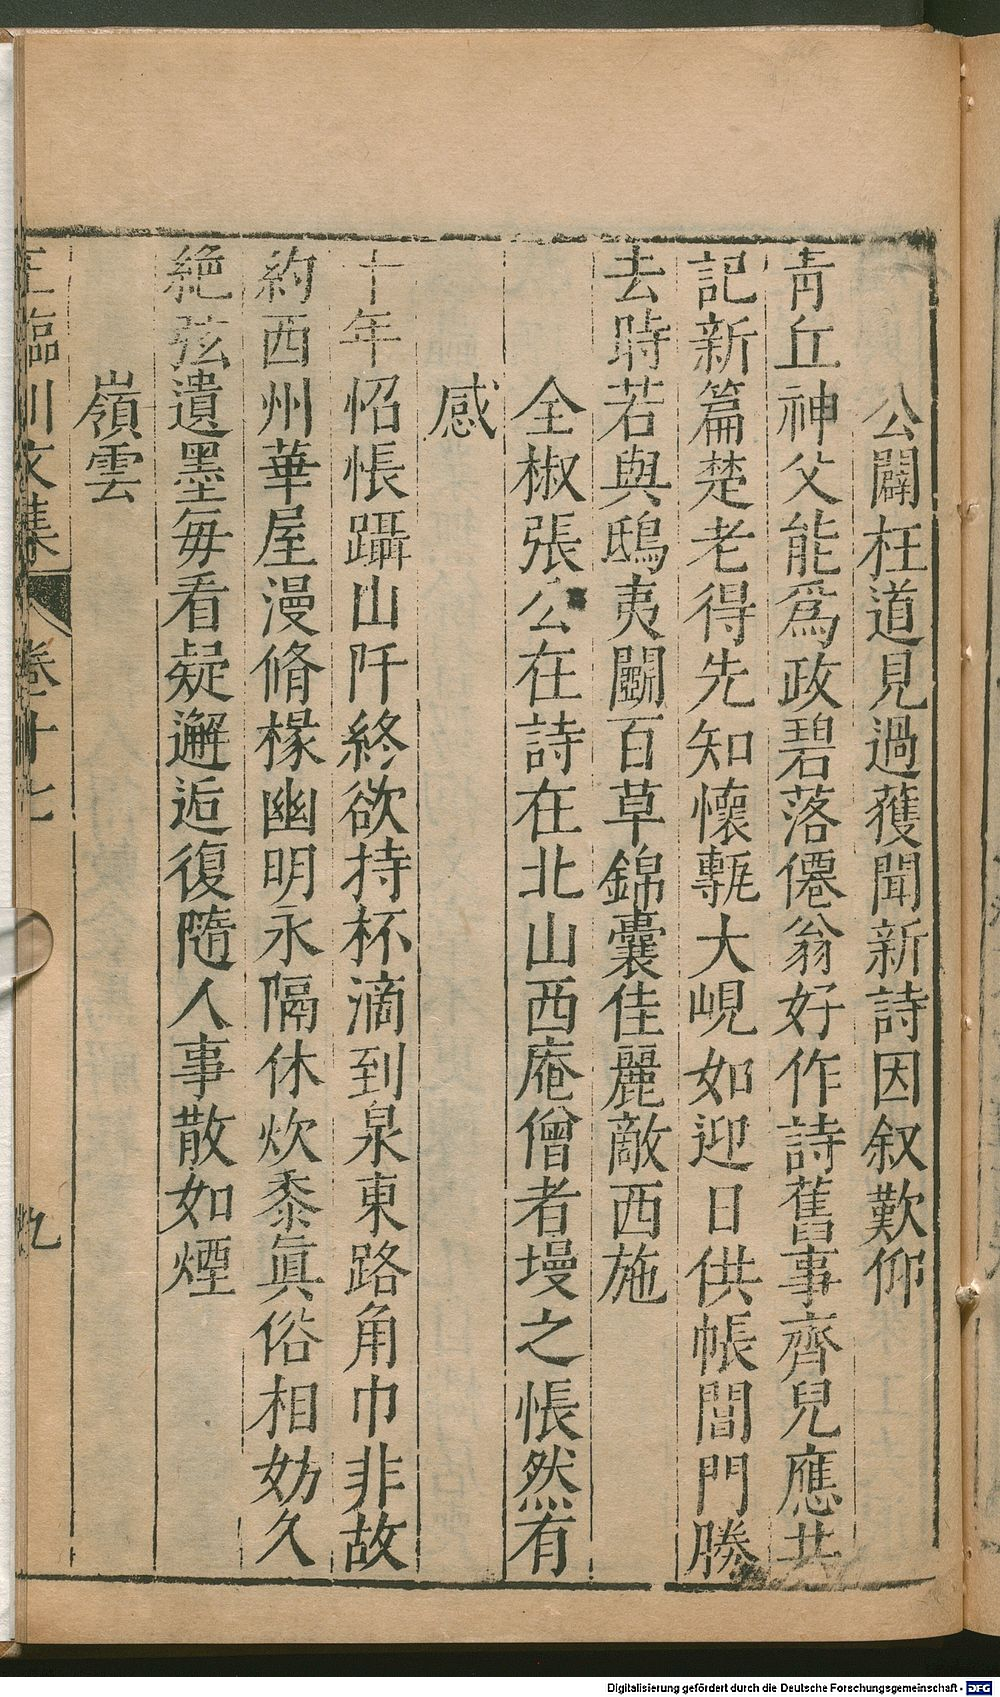 公闢枉道見過獲聞新詩因叙歎仰
青丘神父能爲政碧落僊翁好作詩舊事齊兒應共
記新篇楚老得先知懷甎大峴如迎日供帳閶門勝
去時若與鴟夷鬭百草錦囊佳麗敵西施
全椒張公在詩在北山西庵僧者墁之悵然有
感
十年怊悵躡山阡終欲持杯滴到泉東路角巾非故
約西州華屋漫脩椽幽明永隔休炊黍眞俗相妨久
絶弦遺墨每看疑邂逅復隨人事散如煙
嶺雲
王臨川文集 卷十七 九
Digitalisierung gefördert durch die Deutsche Forschungsgemeinschaft - DFG